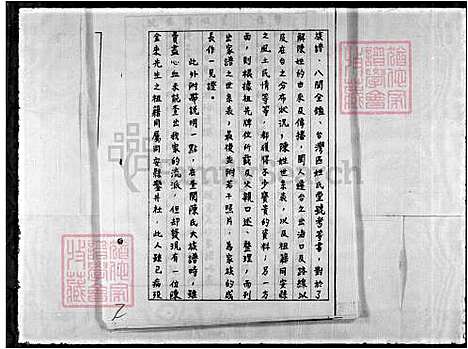 族譜、八閩全鑑、台灣區姓氏堂號考等書，對於了
解陳姓的由來及傳播，閩人遷台之出海口及路線以
及在台之分布狀況，陳姓世系表，以及祖籍同安縣
之風土民情等等，都獲得不少寶貴的資料；另一方
面，則根據祖先牌位所載及父親口述、整理，而列
出家譜之世系表，最後並附若干照片，為家族的成
長作一見證。
此外附帶說明一點，在查閱陳氏大族譜時，雖
費盡心血未能查出我家的流派，但卻發現有一位陳
金來先生之祖籍同屬同安縣鑿井社，此人雖已病歿